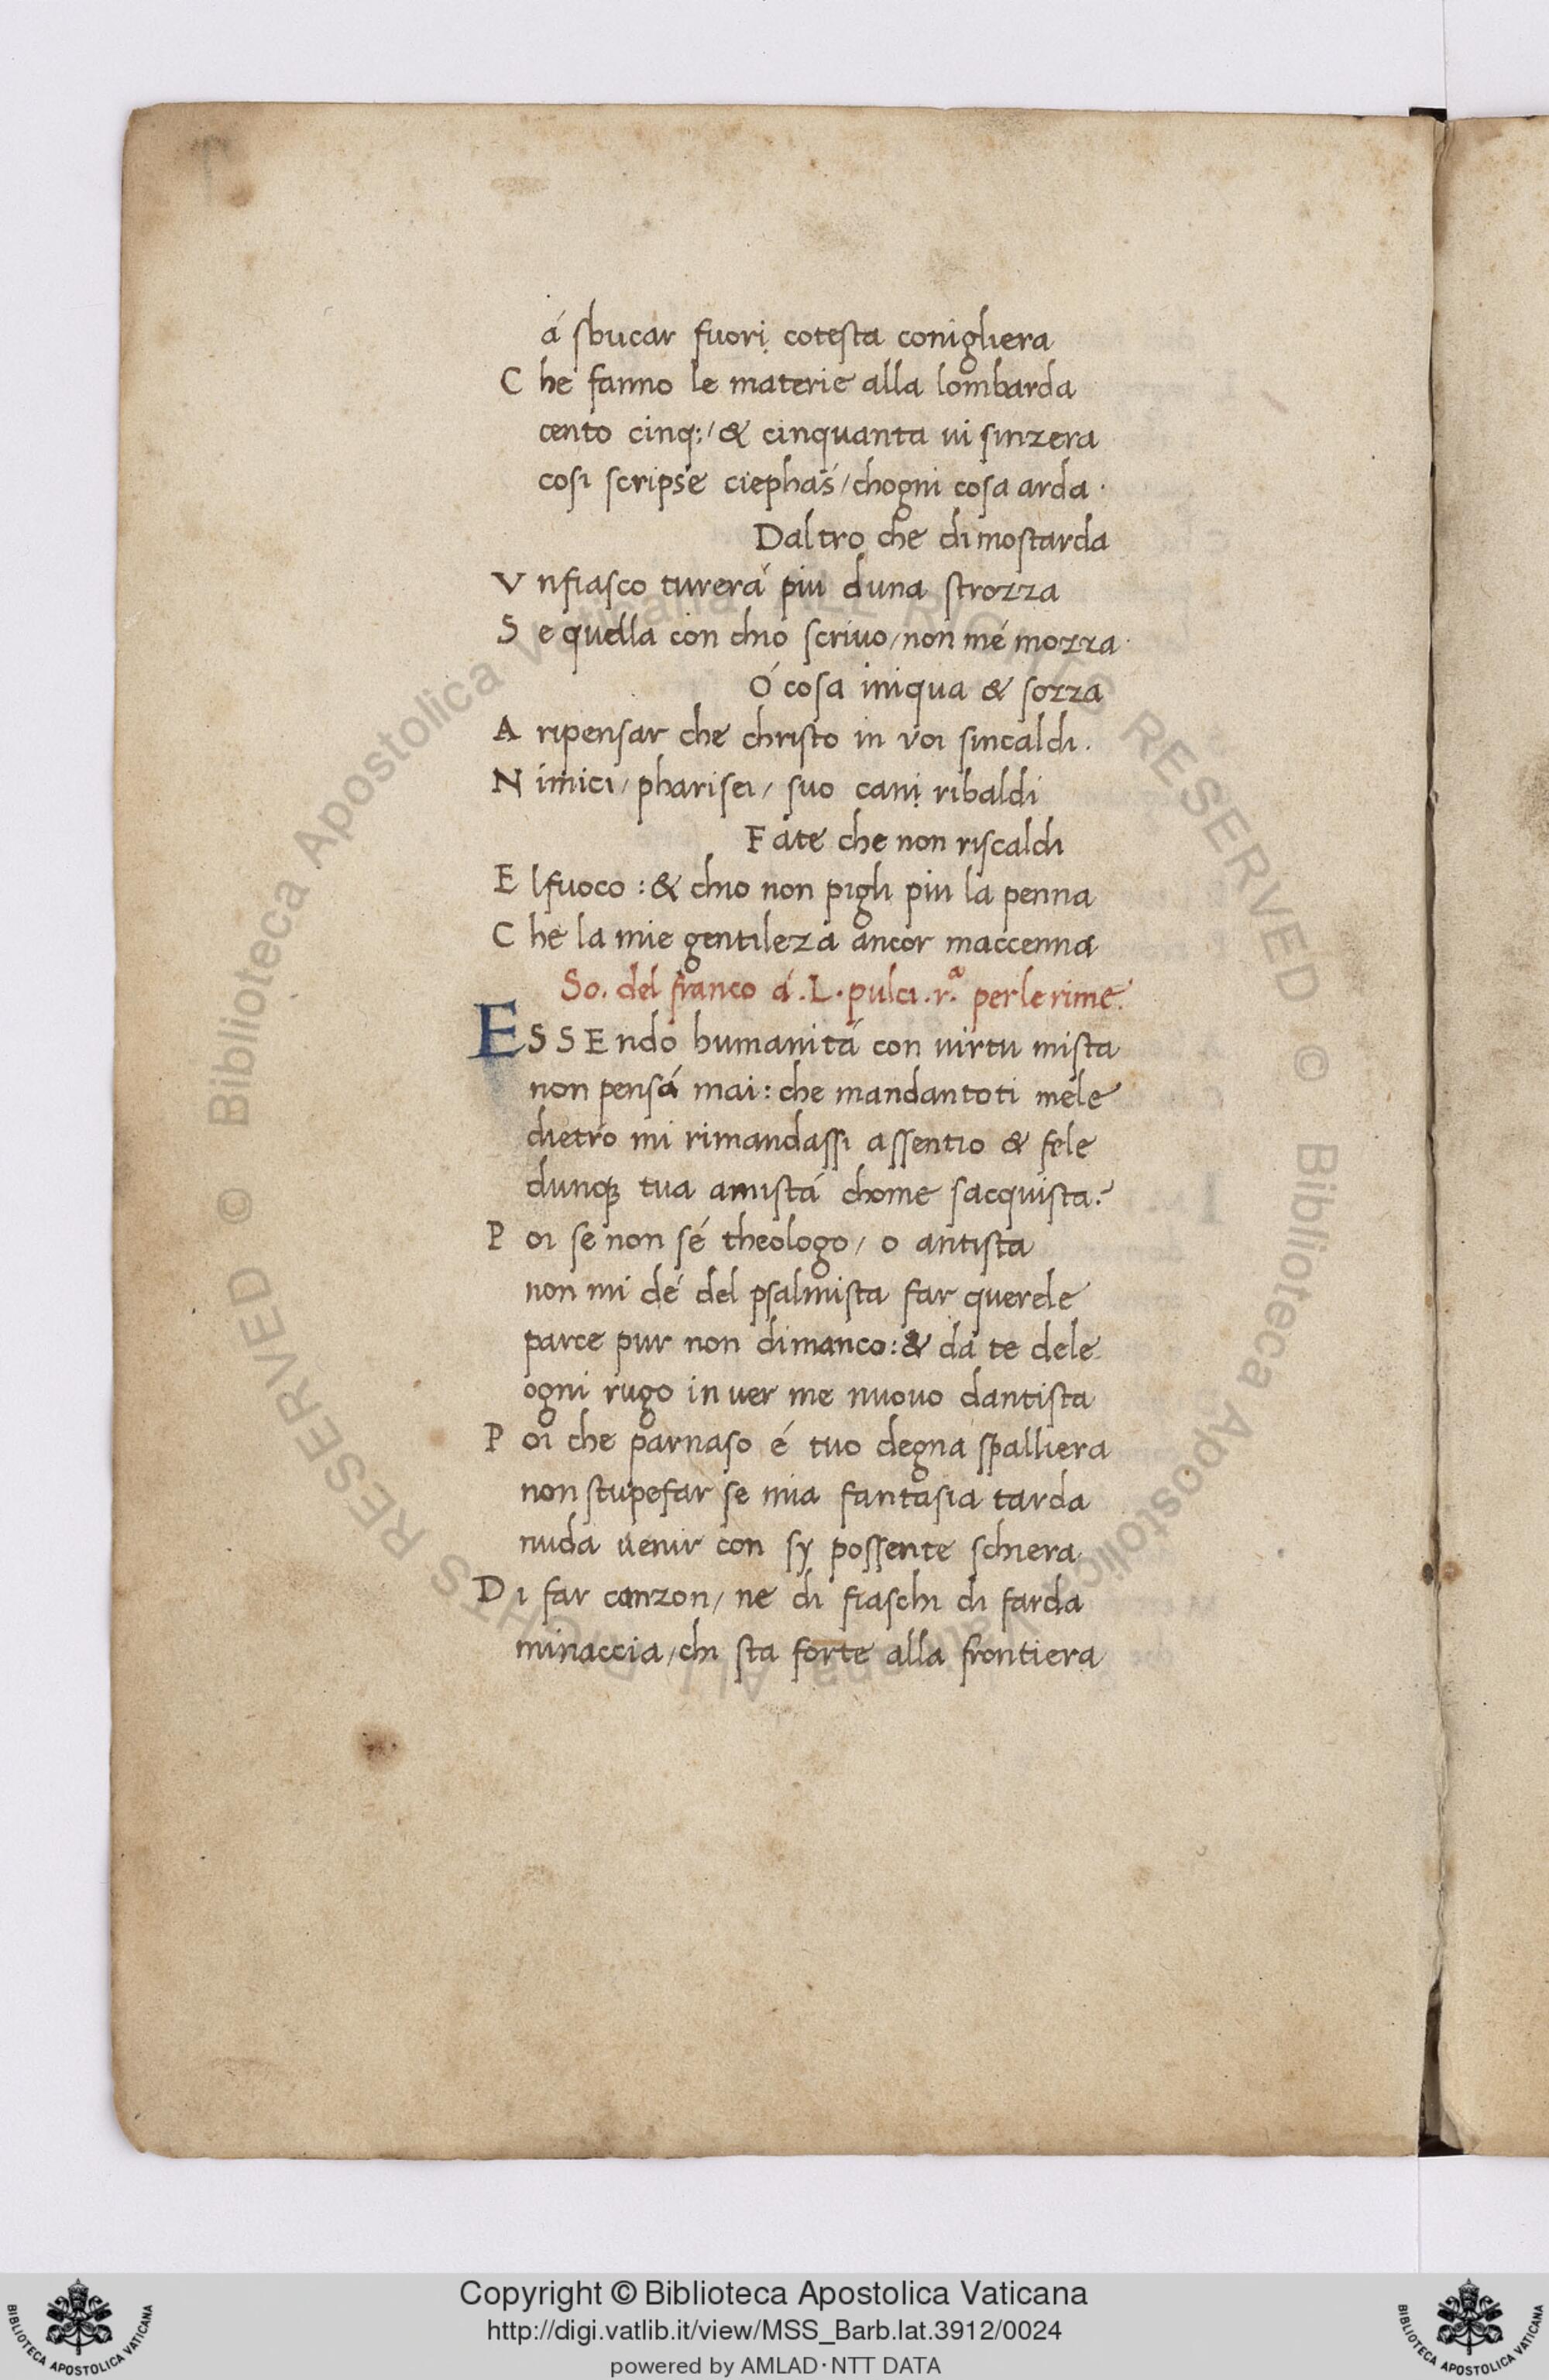 á sbucar fuori cotesta conigliera
C he fanno le materie alla lombarda
cento cinq; / & cinquanta ui sinzera
cosi scripse ciephas / chogni cosa arda ·
Daltro che di mostarda
V nfiasco turerá piu duna strozza
S e quella con chio scriuo / non mé mozza ·
Ó cosa iniqua & sozza
A ripensar che christo in voi sincaldi .
N imici / pharisei / suo cani ribaldi
Fate che non riscaldi
E lfuoco : & chio non pigli piu la penna
C he la mie gentileza ancor maccenna
So. del franco á .L. pulci .r.ª per le rime.
ESSEndo humanitá con uirtu mista
non pensá mai : che mandantoti mele
dietro mi rimandassi assentio & fele
dunqꝫ tua amistá chome sacquista ?
P oi se non sé theologo / o antista
non mi dé del psalmista far querele
parce pur non dimanco : & da te dele
ogni rugo in uer me nuouo dantista
P oi che parnaso é tuo degna spalliera
non stupefar se mia fantasia tarda
nuda uenir con sy possente schiera
D i far canzon / ne di fiaschi di farda
minaccia / chi sta forte alla frontiera
Biblioteca Apostolica Vaticana ALL RIGHTS RESERVED © Biblioteca Apostolica Vaticana ALL RIGHTS RESERVED ©
Copyright © Biblioteca Apostolica Vaticana
http://digi.vatlib.it/view/MSS_Barb.lat.3912/0024
powered by AMLAD·NTT DATA
BIBLIOTECA APOSTOLICA VATICANA
BIBLIOTECA APOSTOLICA VATICANA